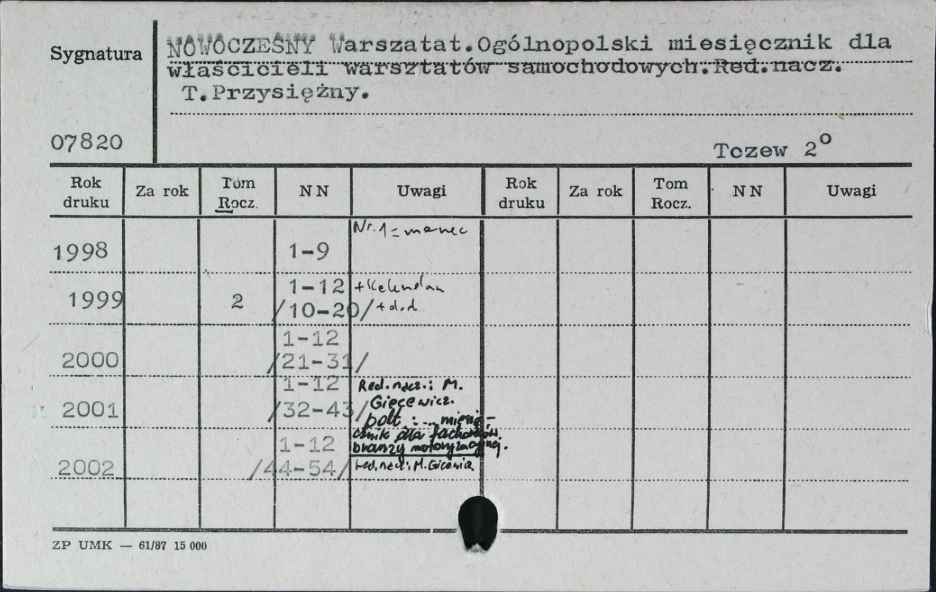 Sygnatura
NOWOCZESNY Warszatat.Ogólnopolski miesięcznik dla
właścicieli warsztatów samochodowych.Red.nacz.
T.Przysiężny.
07820
Tczew 2°
Rok druku Za rok Tom Rocz. NN Uwagi Rok druku Za rok Tom Rocz. NN Uwagi
Nr. 1 = marzec
1998 1-9
1-12 + Kalendarz
1999 2 /10-20/ + d.d.
1-12
2000 /21-31/
1-12 Red.nacz.: M.
2001 /32-43/ Gięcewicz.
podt.: ... miesię-
cznik dla fachowców
1-12 branży motoryzacyjnej.
2002 /44-54/ red.nacz.: M.
ZP UMK — 61/87 15 000